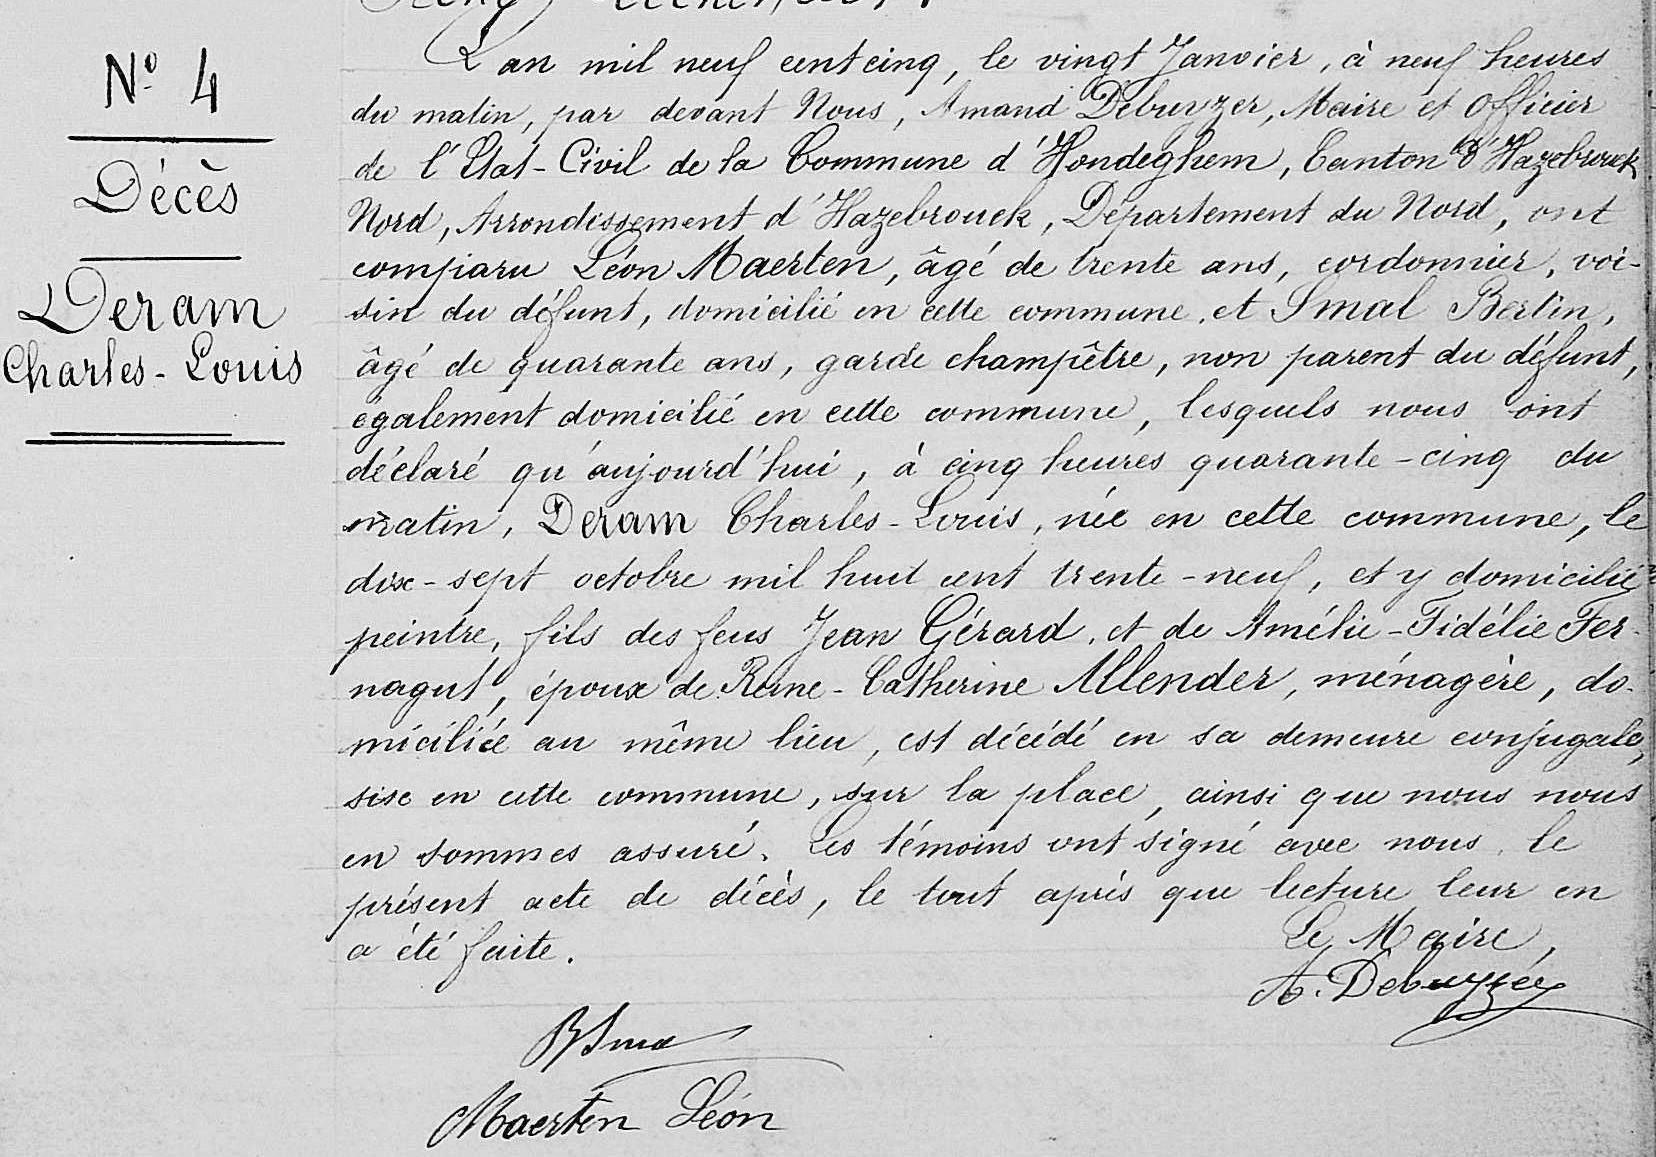 N° 4
Décès
Deram
Charles-Louis
L'an mil neuf cent cinq, le vingt Janvier, à neuf heures
du matin, par devant Nous, Amand Debuyzer, Maire et Officier
de l'Etat-Civil de la Commune d'Hondeghem, Canton d'Hazebrouck
Nord, Arrondissement d'Hazebrouck, Département du Nord, ont
comparu Léon Maerten, âgé de trente ans, cordonnier, voi-
sin du défunt, domicilié en cette commune, et Smal Bertin,
âgé de quarante ans, garde champêtre, non parent du défunt,
également domicilié en cette commune, lesquels nous ont
déclaré qu'aujourd'hui, à cinq heures quarante-cinq du
matin, Deram Charles-Louis, née en cette commune, le
dix-sept octobre mil huit cent trente-neuf, et y domicilié
peintre, fils des feus Jean Gérard, et de Amélie-Fidélie Fer-
nagut, époux de Reine-Catherine Allender, ménagère, do-
miciliée au même lieu, est décédé en sa demeure conjugale,
sise en cette commune, sur la place, ainsi que nous nous
en sommes assuré. Les témoins ont signé avec nous, le
présent acte de décès, le tout après que lecture leur en
a été faite.
Le Maire,
A. Debuyzer
B Smal
Maerten Léon